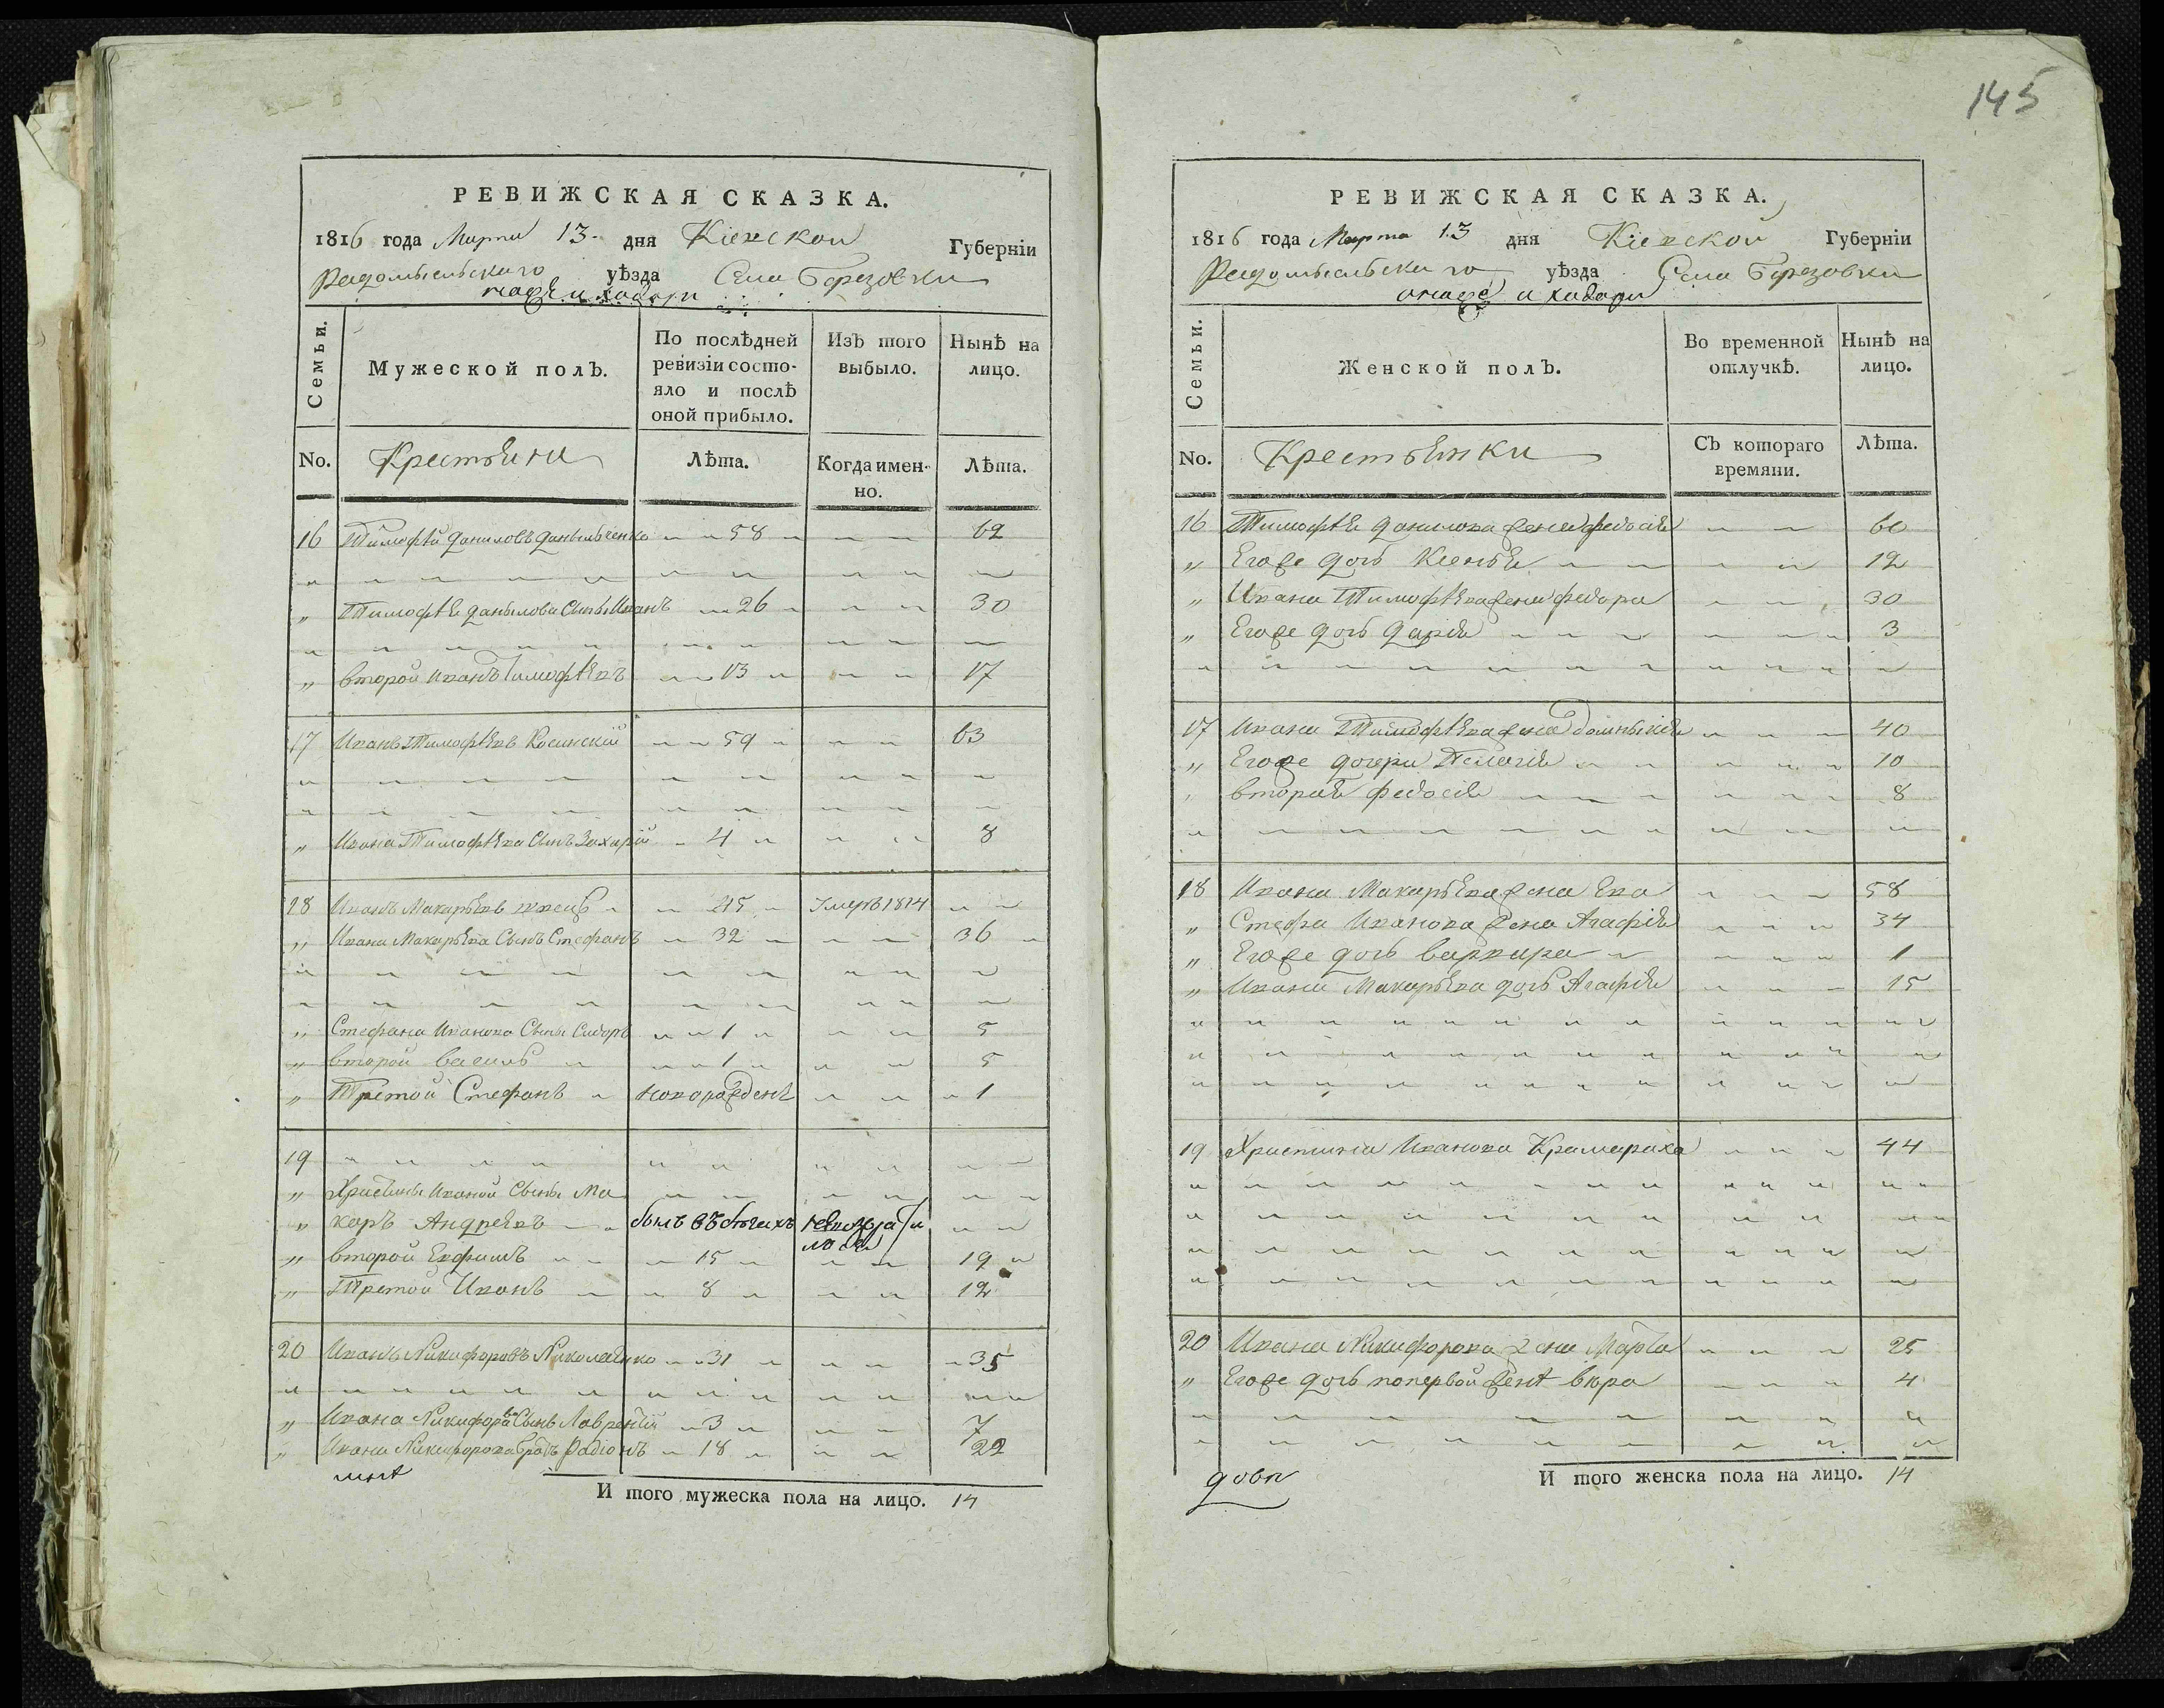 145
РЕВИЖСКАЯ СКАЗКА.
1816 года Марта 13 дня Кіевской Губерніи
Радомысльскаго уѣзда Села Березовки
онаже и хабари
Семьи.
Мужеской полъ.
По послѣдней ревизіи состояло и послѣ оной прибыло.
Изъ того выбыло.
Нынѣ на лицо.
No. Крестьяне Лѣта. Когда именно. Лѣта.
16 Тимофѣй Даниловъ Данильченко 58 62
" Тимофѣя Данылова Сынъ Иванъ 26 30
" второй Иванъ Тимофѣевъ 13 17
17 Иванъ Тимофѣевъ Косинскій 59 63
" Ивана Тимофѣева Сынъ Захарій 4 8
18 Иванъ Макарьевъ Умеръ 1814
" Ивана Макарьева Сынъ Стефанъ 32 36
" Стефана Иванова Сыны Сидоръ 1 5
" второй василь 1 5
" Третой Стефанъ новорожденъ 1
19
" Христины Ивановой Сыны Ма
" каръ Андреевъ былъ въ бѣгахъ
" второй Ефимъ 15 19
" Третой Иванъ 8 12
20 Иванъ Никифоровъ Николаенко 31 35
" Ивана Никифорова Сынъ Лаврентій 3 7
" Ивана Никифорова братъ Радіонъ 18 22
И того мужеска пола на лицо. 14
РЕВИЖСКАЯ СКАЗКА.
1816 года Марта 13 дня Кіевской Губерніи
Радомысльскаго уѣзда Села Березовки
онаже и хабари
Семьи.
Женской полъ.
Во временной отлучкѣ.
Нынѣ на лицо.
No. Крестьянки Съ котораго времяни. Лѣта.
16 Тимофѣя Данилова жена федосія 60
" Егоже дочь Ксенья 12
" Ивана Тимофѣева жена федора 30
" Егоже дочь Дарія 3
17 Ивана Тимофѣева жена домныкія 40
" Егоже дочери Пелагія 10
" вторая федосія 8
18 Ивана Макарьева жена Ева 58
" Стефа Иванова жена Агафія 34
" Егоже дочь варвара 1
" Ивана Макарьева дочь Агафія 15
19 Христинія Иванова Крамараха 44
20 Ивана Никифорова жена Марта 25
" Егоже дочь по первой женѣ вюра 4
И того женска пола на лицо. 14